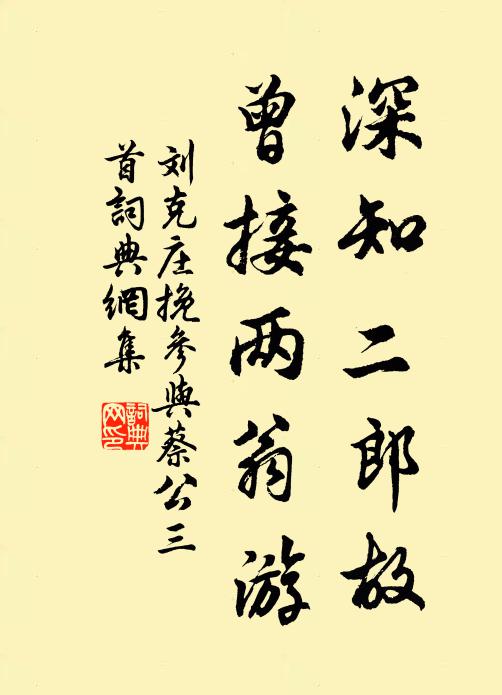 深知二郎故
曾接两翁游
刘克庄挽参与蔡公三
首詞典網集
詞典
网印